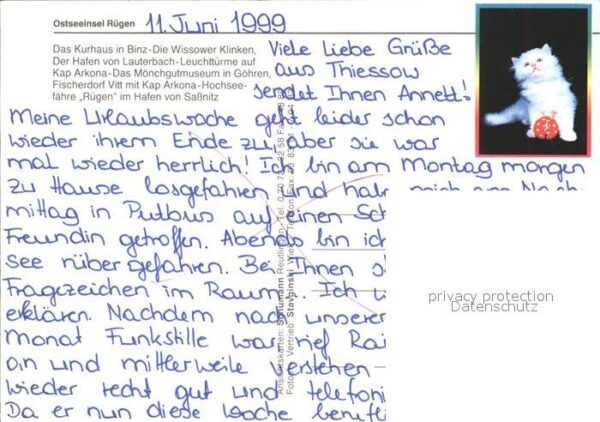 Ostseeinsel Rügen
11. Juni 1999
Das Kurhaus in Binz-Die Wissower Klinken,
Der Hafen von Lauterbach-Leuchttürme auf
Kap Arkona-Das Mönchgutmuseum in Göhren,
Fischerdorf Vitt mit Kap Arkona-Hochsee-
fähre „Rügen" im Hafen von Saßnitz
Viele Liebe Grüße
aus Thiessow
sendet Ihnen Annett!
Meine Urlaubswoche geht leider schon
wieder ihrem Ende zu, aber sie war
mal wieder herrlich! Ich bin am Montag morgen
zu Hause losgefahren und hab mich am Nach-
mittag in Putbus auf einen
Freundin getroffen. Abends bin ich
See rüber gefahren. Bei Ihnen
Fragezeichen im Raum. Ich
erklären. Nachdem nach unserer
monat Funkstille war, rief
an und mittlerweile verstehen
wieder recht gut und telefoni
Da er nun diese Woche berufl
Ansichtskarten: Schumann Reutlingen
Vertrieb: Stavginski
privacy protection
Datenschutz